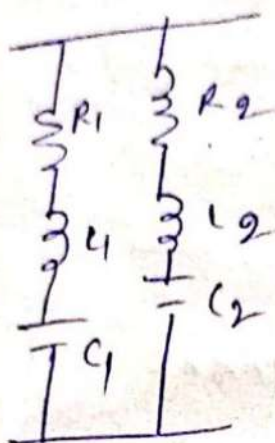 R1 R2
L1 L2
C1 C2